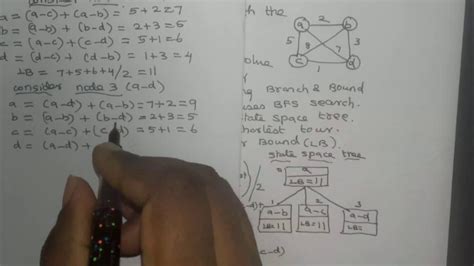 a = (a-c) + (a-b) = 5+2=7
b = (a-b) + (b-d) = 2+3=5
c = (a-c) + (c-d) = 5+1=6
d = (d-c) + (d-b) = 1+3=4
LB = 7+5+6+4/2 = 11
consider node 3 (a-d)
a = (a-d) + (a-b) = 7+2=9
b = (a-b) + (b-d) = 2+3=5
c = (a-c) + (c-d) = 5+1=6
d = (a-d) +
the
a 2 b
5 8 7 3
c 1 d
Branch & Bound
BFS search.
state space tree.
tour.
Bound (LB).
state space tree
)/2
a
LB = 11
1 2 3
a-b a-c a-d
LB=11 LB=11 LB=
c-d)